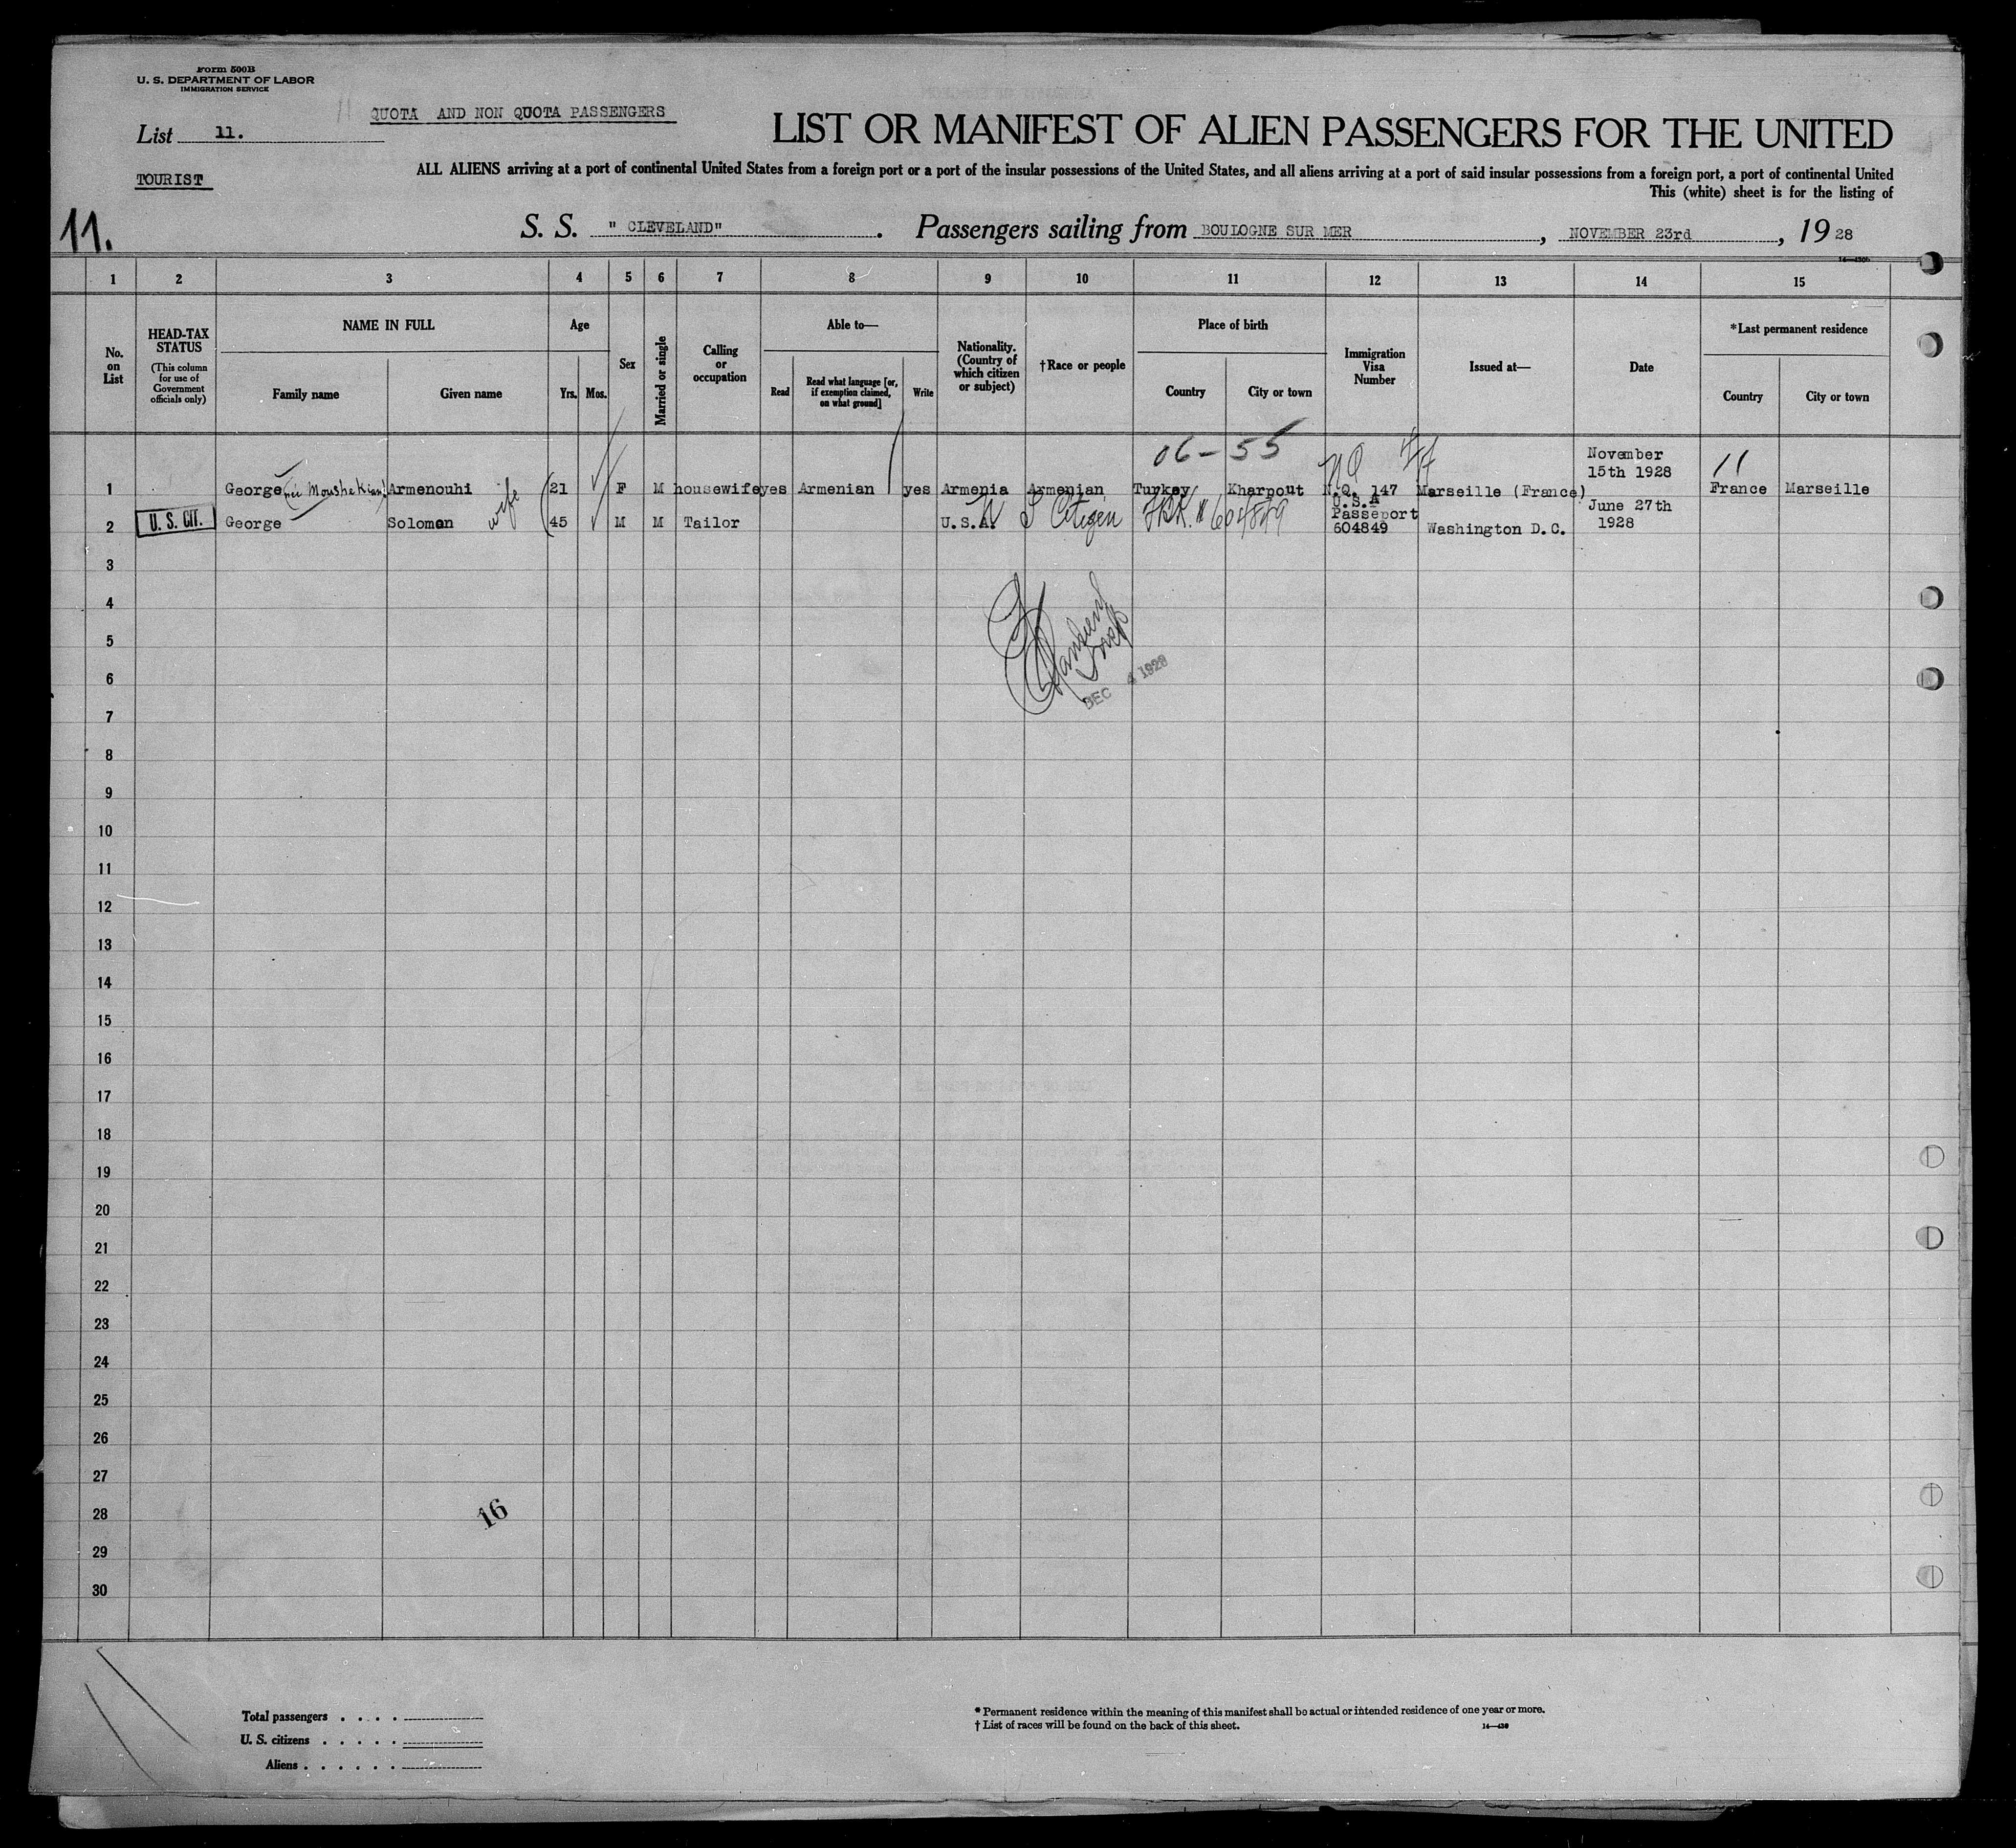 Form 500B
U. S. DEPARTMENT OF LABOR
IMMIGRATION SERVICE
QUOTA AND NON QUOTA PASSENGERS
List 11.
LIST OR MANIFEST OF ALIEN PASSENGERS FOR THE UNITED
TOURIST
ALL ALIENS arriving at a port of continental United States from a foreign port or a port of the insular possessions of the United States, and all aliens arriving at a port of said insular possessions from a foreign port, a port of continental United
This (white) sheet is for the listing of
11.
S. S. " CLEVELAND" . Passengers sailing from BOULOGNE SUR MER , NOVEMBER 23rd , 19 28
1 2 3 4 5 6 7 8 9 10 11 12 13 14 15
No. on List
HEAD-TAX STATUS
(This column for use of Government officials only)
NAME IN FULL
Family name Given name
Age
Yrs. Mos.
Sex
Married or single
Calling or occupation
Able to—
Read
Read what language [or, if exemption claimed, on what ground]
Write
Nationality. (Country of which citizen or subject)
†Race or people
Place of birth
Country City or town
Immigration Visa Number
Issued at—
Date
*Last permanent residence
Country City or town
06-55
1 George (née Moushekian) Armenouhi 21 F M housewife yes Armenian yes Armenia Armenian Turkey Kharpout N.Q. 147 Marseille (France) November 15th 1928 France Marseille
wife
2 U. S. CIT. George Solomon 45 M M Tailor U.S.A. Citizen # 604849 U.S.A Passeport 604849 Washington D.C. June 27th 1928
3
4
5
6
DEC 4 1928
7
8
9
10
11
12
13
14
15
16
17
18
19
20
21
22
23
24
25
26
27
28
16
29
30
Total passengers . . . .
U. S. citizens . . . . .
Aliens . . . . . .
* Permanent residence within the meaning of this manifest shall be actual or intended residence of one year or more.
† List of races will be found on the back of this sheet.
14—430